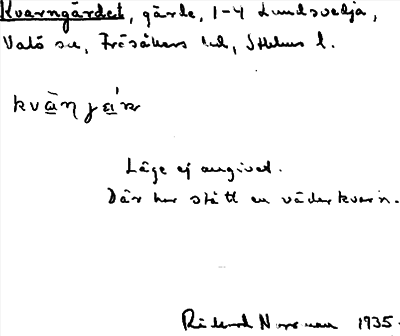 Kvarngärdet, gärde, 1-4 Lundsvedja,
Vätö sn, Frösåkers hd, Sthlms l.
Läge ej angivet.
Där har stått en väderkvarn.
Rickard 1935.